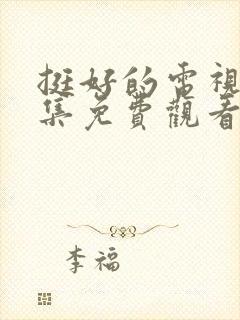 挺好的電視
集免費觀看
李福